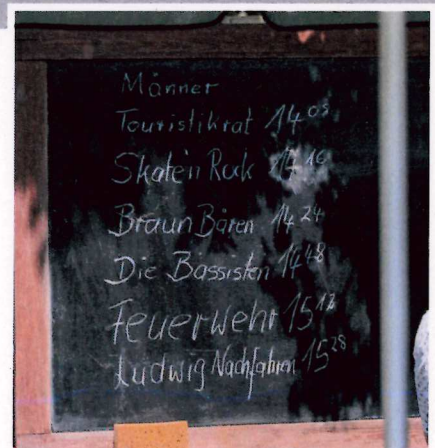 Männer
Touristikrat 14 05
Skate'n Rock 14 16
Braun Bären 14 24
Die Bassisten 14 48
Feuerwehr 15 18
Ludwig Nachfahren 15 28